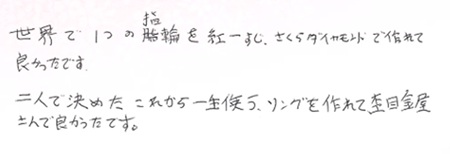 世界で1つの指輪を紅一すじ、さくらダイヤモンドで作れて
良かったです。
二人で決めたこれから一生使う、リングを作れて杢目金屋
さんで良かったです。